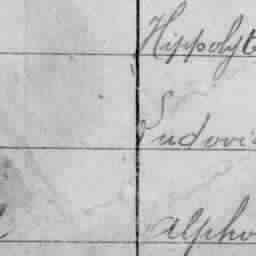 Hippolyt
Ludovic
Alpho